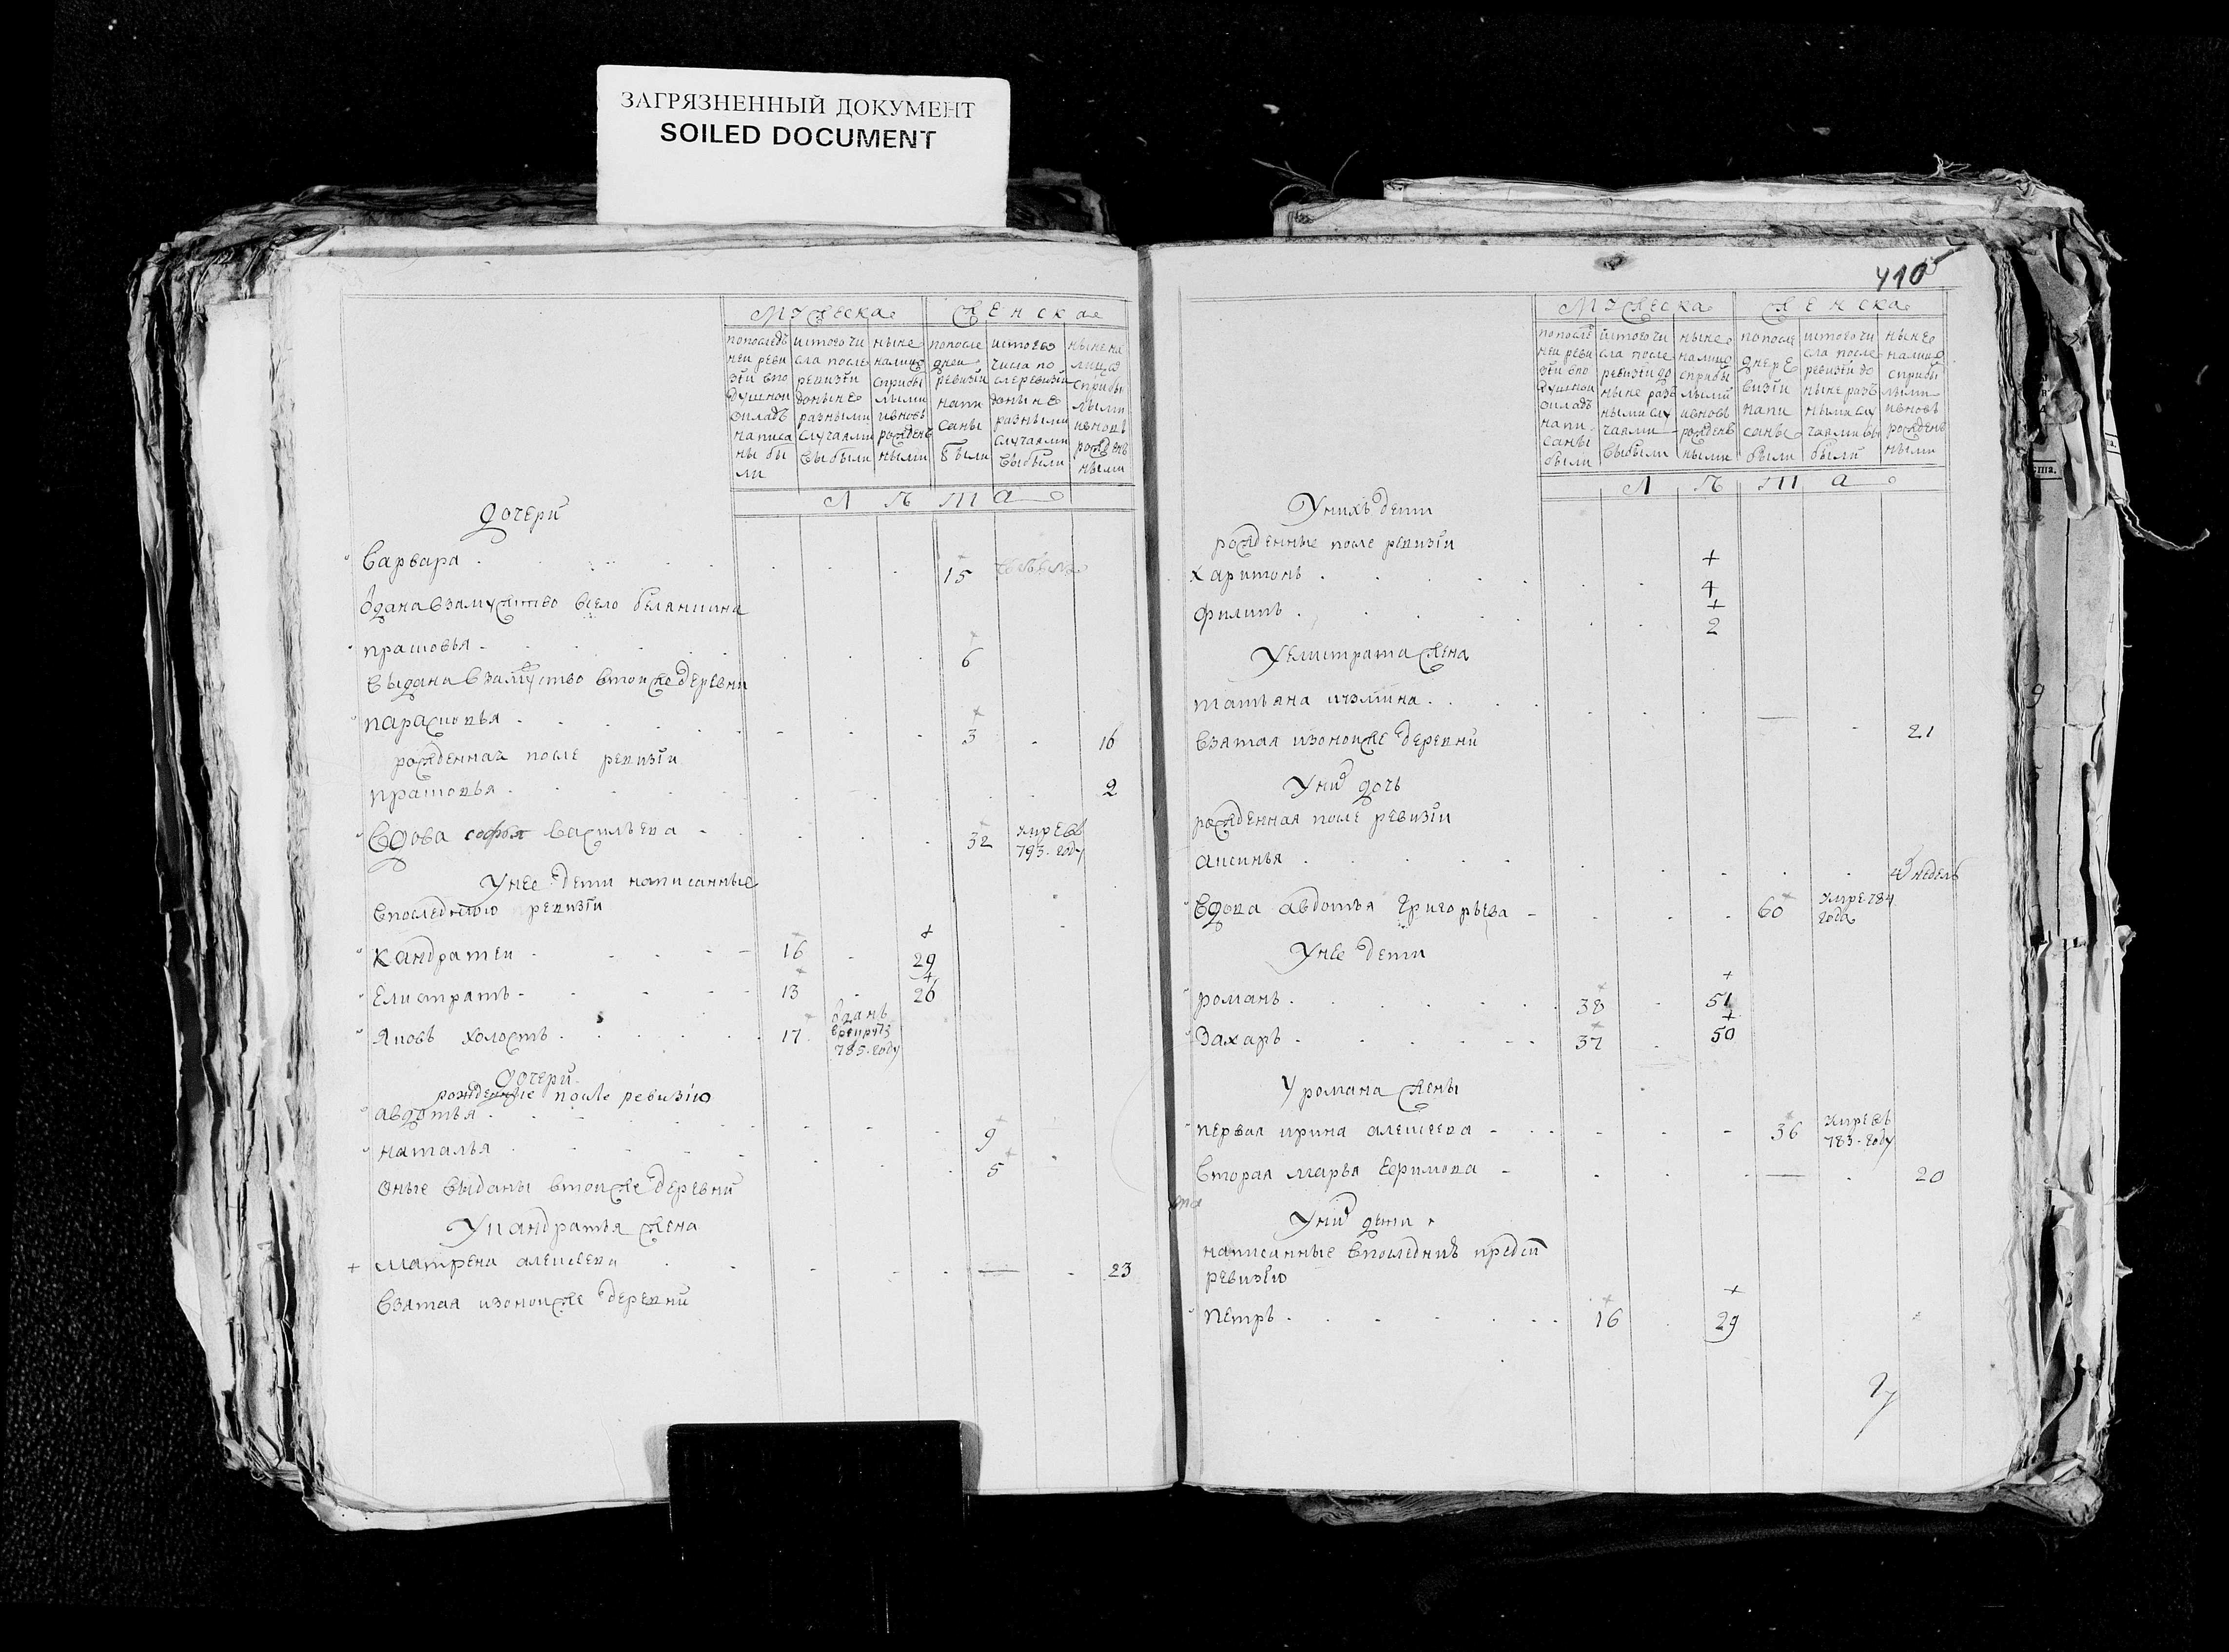 ЗАГРЯЗНЕННЫЙ ДОКУМЕНТ
SOILED DOCUMENT
Мужеска Женска
попоследъ
ней реви
зіи впо
душной
окладъ
написа
ны бы
ли
истого чи
сла после
ревизіи
доныне
разными
случаями
выбыли
ныне
налицо
сприбы
лыми
ивновь
рожден
ными
попосле
дней
ревизіи
напи
саны
были
истого
числа по
слеревизіи
доныне
разными
случаями
выбыли
ныне на
лицо
сприбы
лыми
ивновь
рожден
ными
Л ѣ т а
дочери
Варвара 15
одана взамужство всело
прасковья 6
выдана взамуство втойже деревни
парасковья 3 16
рожденная после ревизіи
прасковья 2
Вдова софья васильева 32 умре въ
793 году
Унее дети написанные
впоследнюю ревизіи
Кандратей 16 29
Елистратъ 13 26
Яковъ холостъ 17 отданъ
врекруты
785 году
дочери
рожденные после ревизію
авдотья 9
наталья 5
оные выданы втойже деревни
Укандратья жена
матрена алексеева 23
взятая изонойже деревни
410
Мужеска Женска
попослед
ней реви
зіи впо
душной
окладъ
напи
саны
были
истого чи
сла после
ревизіи до
ныне раз
ными слу
чаями
выбыли
ныне
налицо
сприбы
лыми
ивновь
рожден
ными
попосле
дней ре
визіи
напи
саны
были
истого чи
сла после
ревизіи до
ныне раз
ными слу
чаями вы
были
ныне
налицо
сприбы
лыми
ивновь
рожден
ными
Л ѣ т а
Унихъ дети
рожденные после ревизіи
харитонъ 4
филипъ 2
Уелистрата жена
татьяна 21
взятая изонойже деревни
Унихъ дочь
рожденная после ревизіи
аксинья недель
вдова авдотья григорьева 60 умре 784
года
Унее дети
романъ 38 51
Захаръ 37 50
Уромана жены
первая ирина алексеева 36 умре въ
783 году
вторая марья ефимова 20
Унихъ дети
написанные впоследнюю предъ сей
ревизію
Петръ 16 29